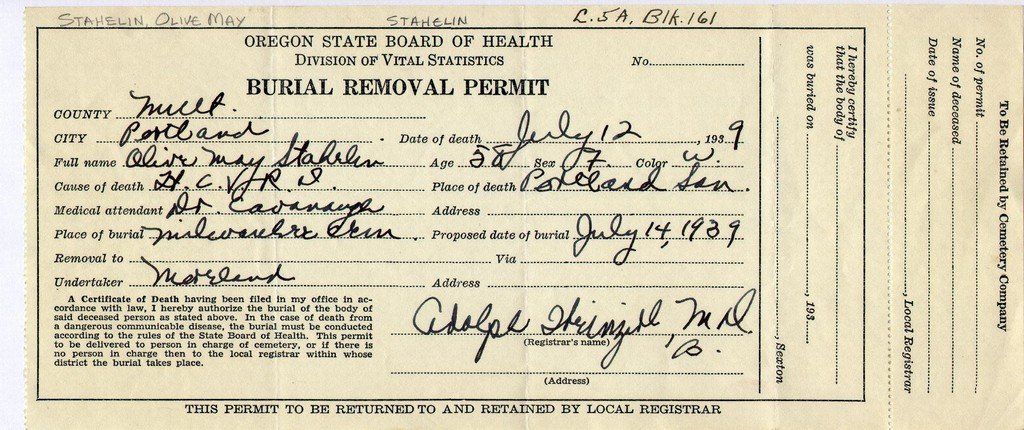 STAHELIN, OLIVE MAY STAHELIN L.5A, Blk.161
OREGON STATE BOARD OF HEALTH
DIVISION OF VITAL STATISTICS No.
BURIAL REMOVAL PERMIT
COUNTY Mult.
CITY Portland Date of death July 12, 1939
Full name Olive May Stahelin Age 58 Sex F. Color W.
Cause of death H.C.V.R.D. Place of death Portland San.
Medical attendant Dr. Cavanaugh Address
Place of burial Milwaukee Cem. Proposed date of burial July 14, 1939
Removal to Via
Undertaker Moreland Address
A Certificate of Death having been filed in my office in ac-
cordance with law, I hereby authorize the burial of the body of
said deceased person as stated above. In the case of death from
a dangerous communicable disease, the burial must be conducted
according to the rules of the State Board of Health. This permit
to be delivered to person in charge of cemetery, or if there is
no person in charge then to the local registrar within whose
district the burial takes place.
Adolph M.D.
(Registrar's name)
B.
(Address)
THIS PERMIT TO BE RETURNED TO AND RETAINED BY LOCAL REGISTRAR
I hereby certify
that the body of
was buried on , 193
, Sexton
To Be Retained by Cemetery Company
No. of permit
Name of deceased
Date of issue
, Local Registrar